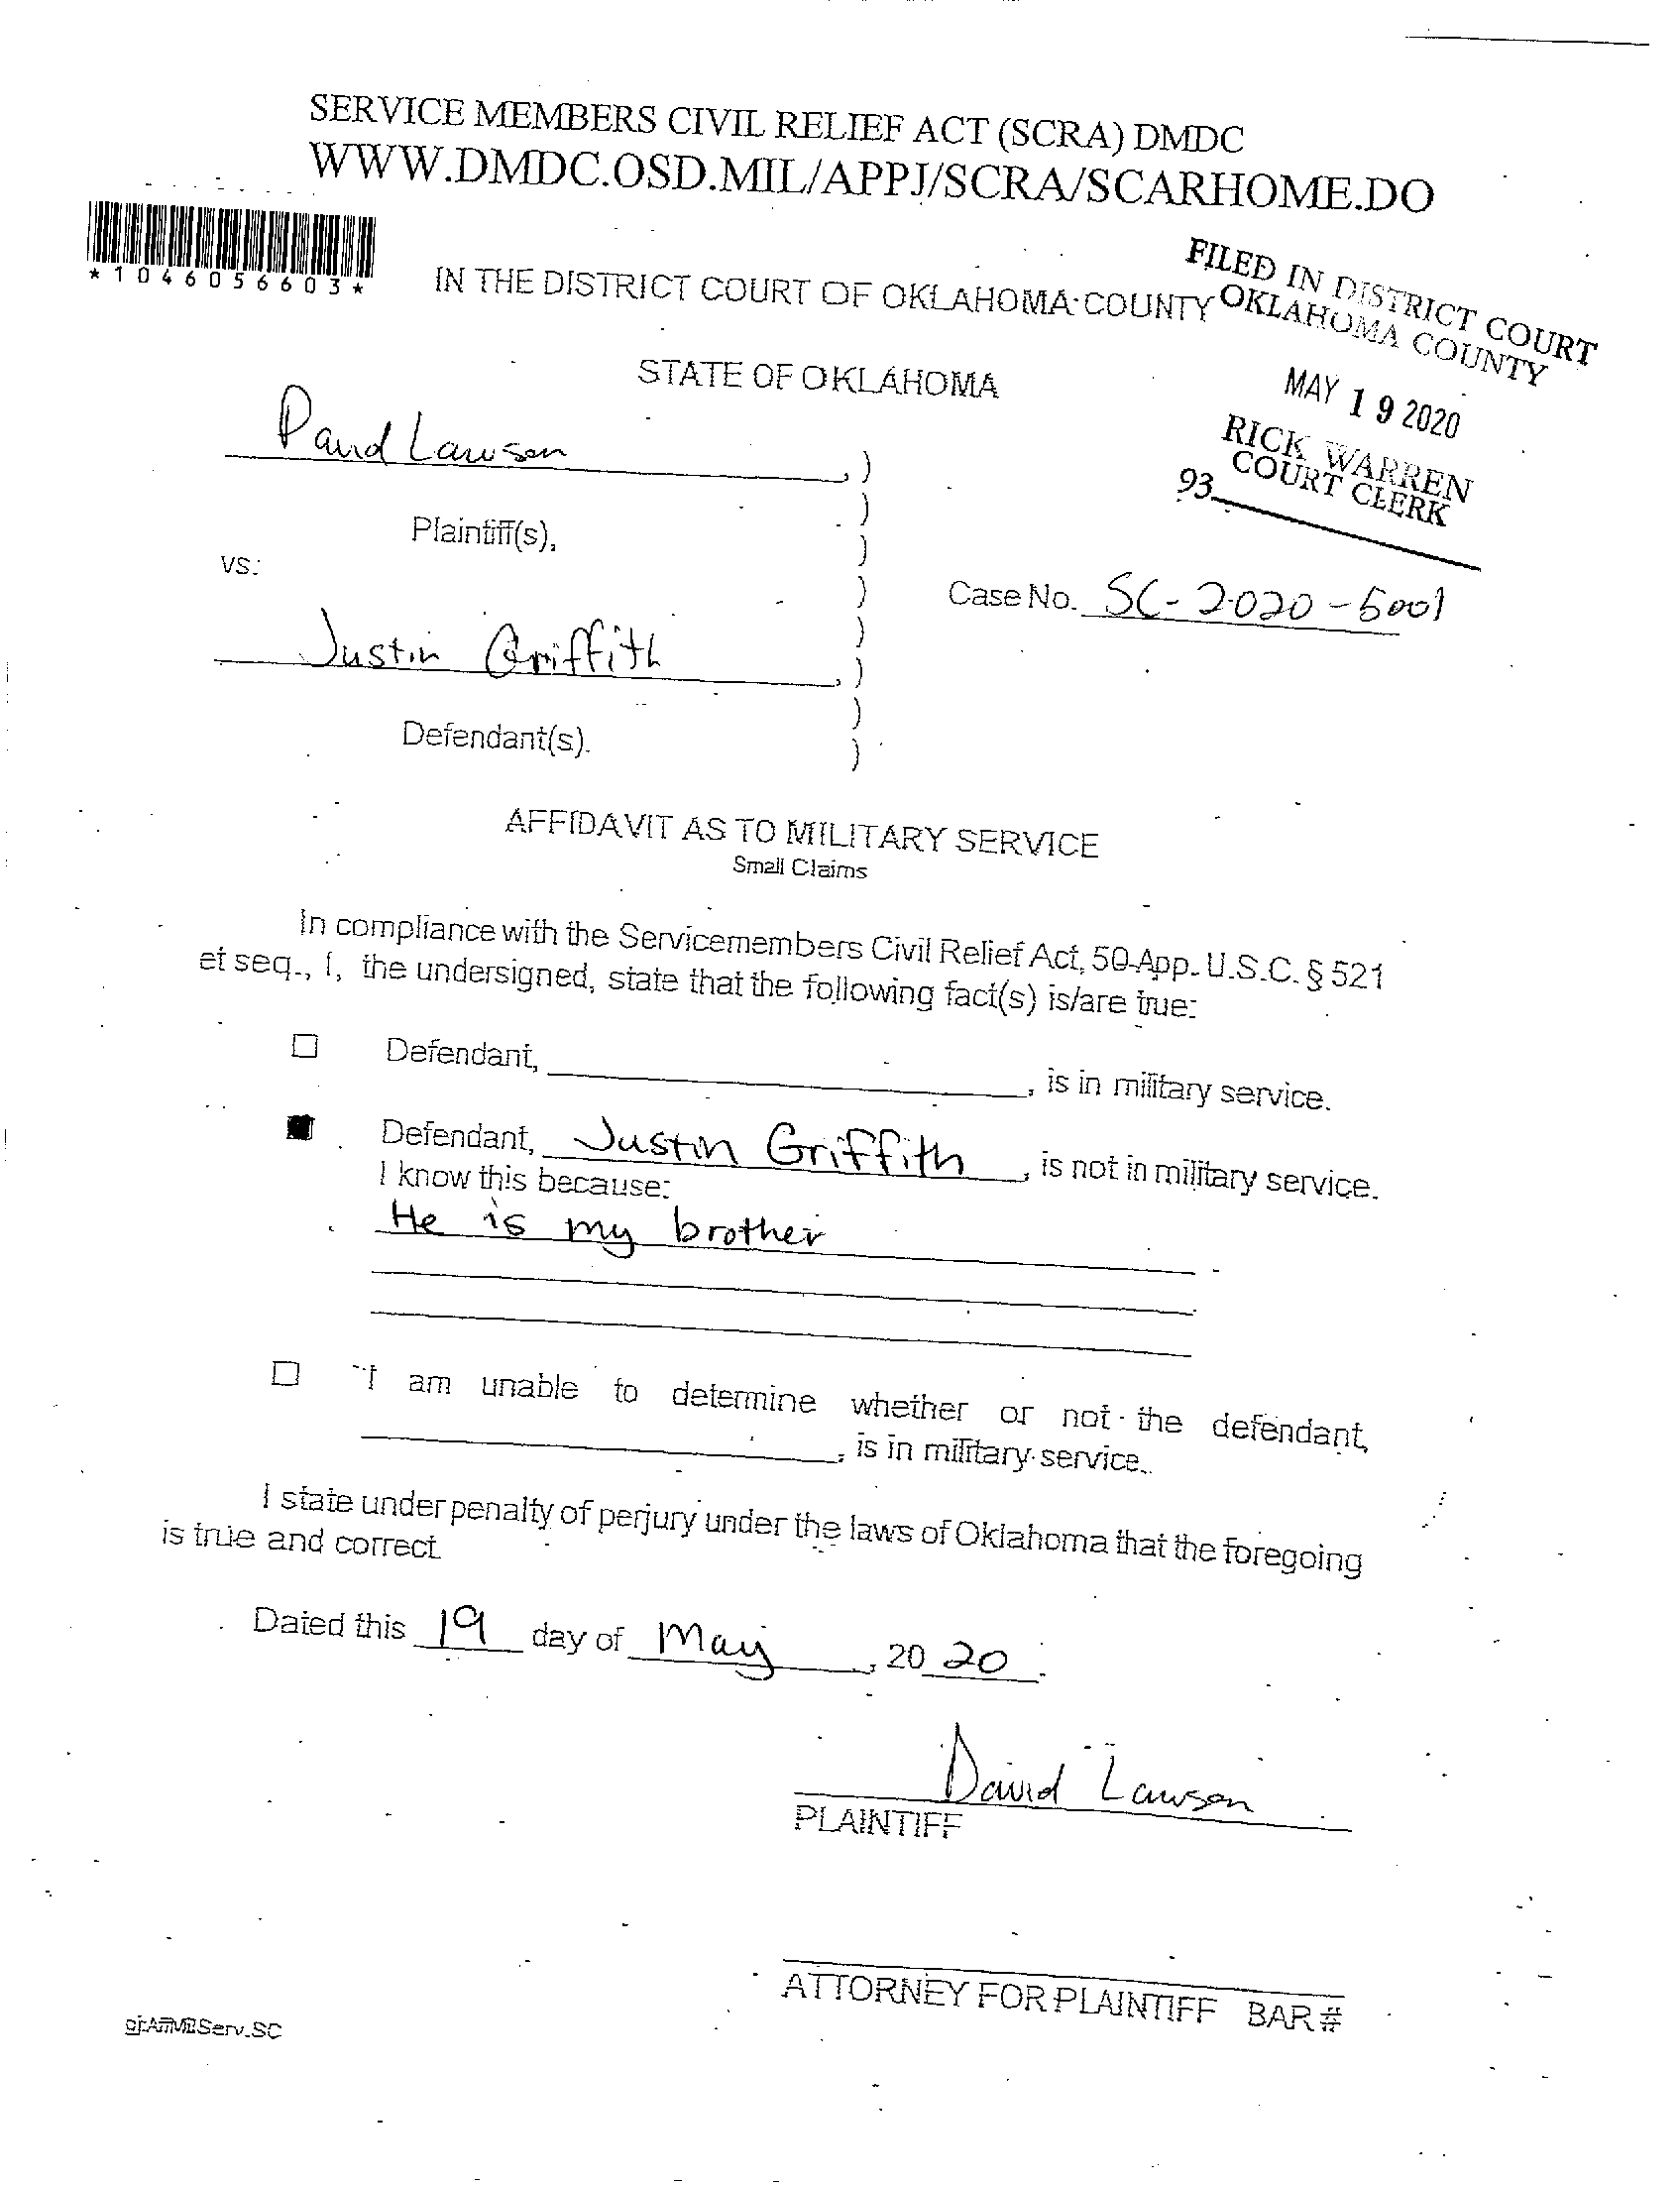 SERVICE MEMBERS CIVIL RELIEF ACT (SCRA) DMDC
WWW.DMDC.OSD.MIL/APPJ/SCRA/SCARHOME.DO
*1046056603*
IN THE DISTRICT COURT OF OKLAHOMA COUNTY
FILED IN DISTRICT COURT
OKLAHOMA COUNTY
STATE OF OKLAHOMA
MAY 19 2020
RICK WARREN
COURT CLERK
93
David Lawson, )
Plaintiff(s), )
vs. )
Case No. SC-2020-5001
Justin Griffith, )
Defendant(s). )
AFFIDAVIT AS TO MILITARY SERVICE
Small Claims
In compliance with the Servicemembers Civil Relief Act, 50 App. U.S.C. § 521
et seq., I, the undersigned, state that the following fact(s) is/are true:
☐ Defendant, , is in military service.
■ Defendant, Justin Griffith, is not in military service.
I know this because:
He is my brother
☐ I am unable to determine whether or not the defendant,
, is in military service.
I state under penalty of perjury under the laws of Oklahoma that the foregoing
is true and correct.
Dated this 19 day of May, 2020.
David Lawson
PLAINTIFF
ATTORNEY FOR PLAINTIFF BAR #